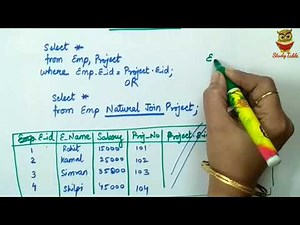 Select *
from Emp, Project
where Emp.Eid = Project.Eid;
OR
Select *
from Emp Natural Join Project;
Emp.Eid E.Name Salary Proj-No Project.Eid
1 Rohit 15000 101
2 Kamal 25000 102
3 Simran 35000 103
4 Shilpi 45000 104
E
Study Table